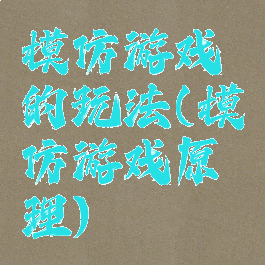 模仿游戏
的玩法(模
仿游戏原
理)